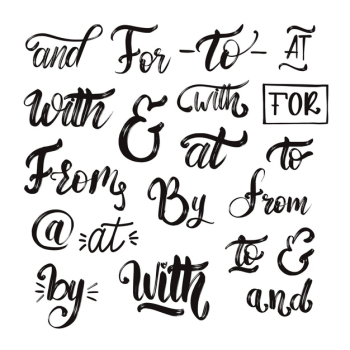 and For -to- AT
With & with FOR
at to
From By from
@ at to &
by With and